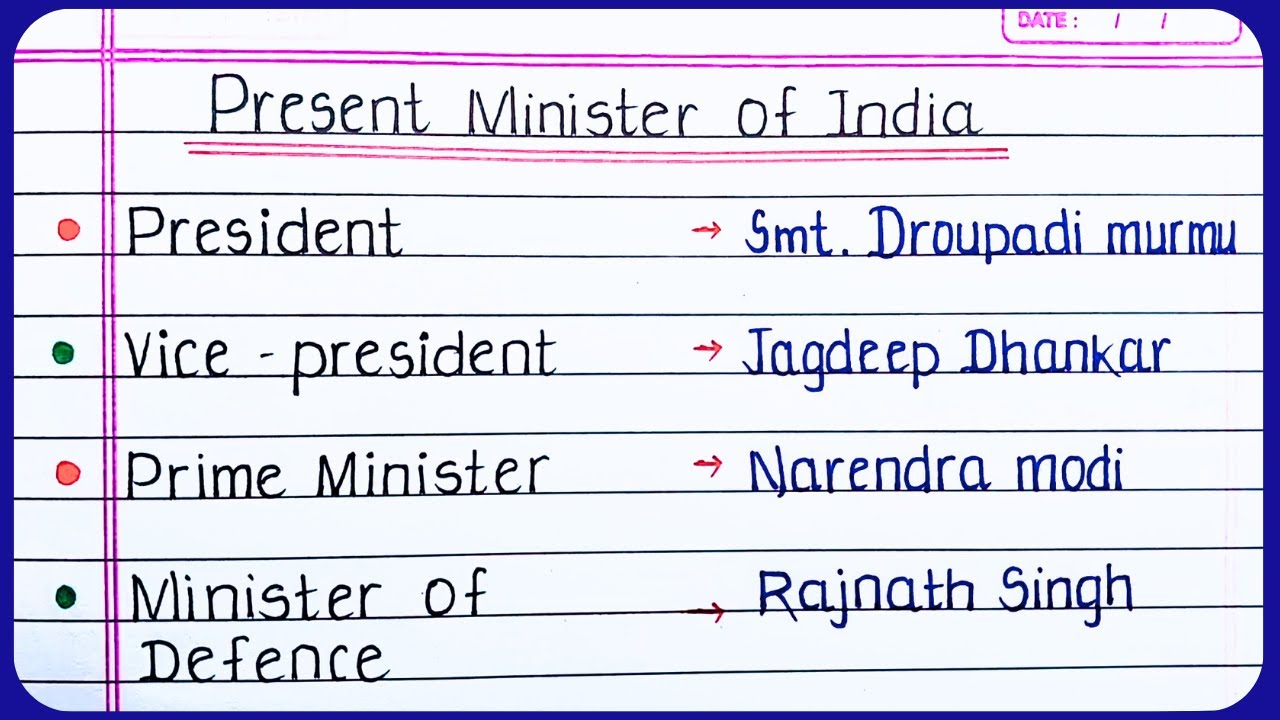 DATE: / /
Present Minister of India
President → Smt. Droupadi murmu
Vice-president → Jagdeep Dhankar
Prime Minister → Narendra modi
Minister of → Rajnath Singh
Defence